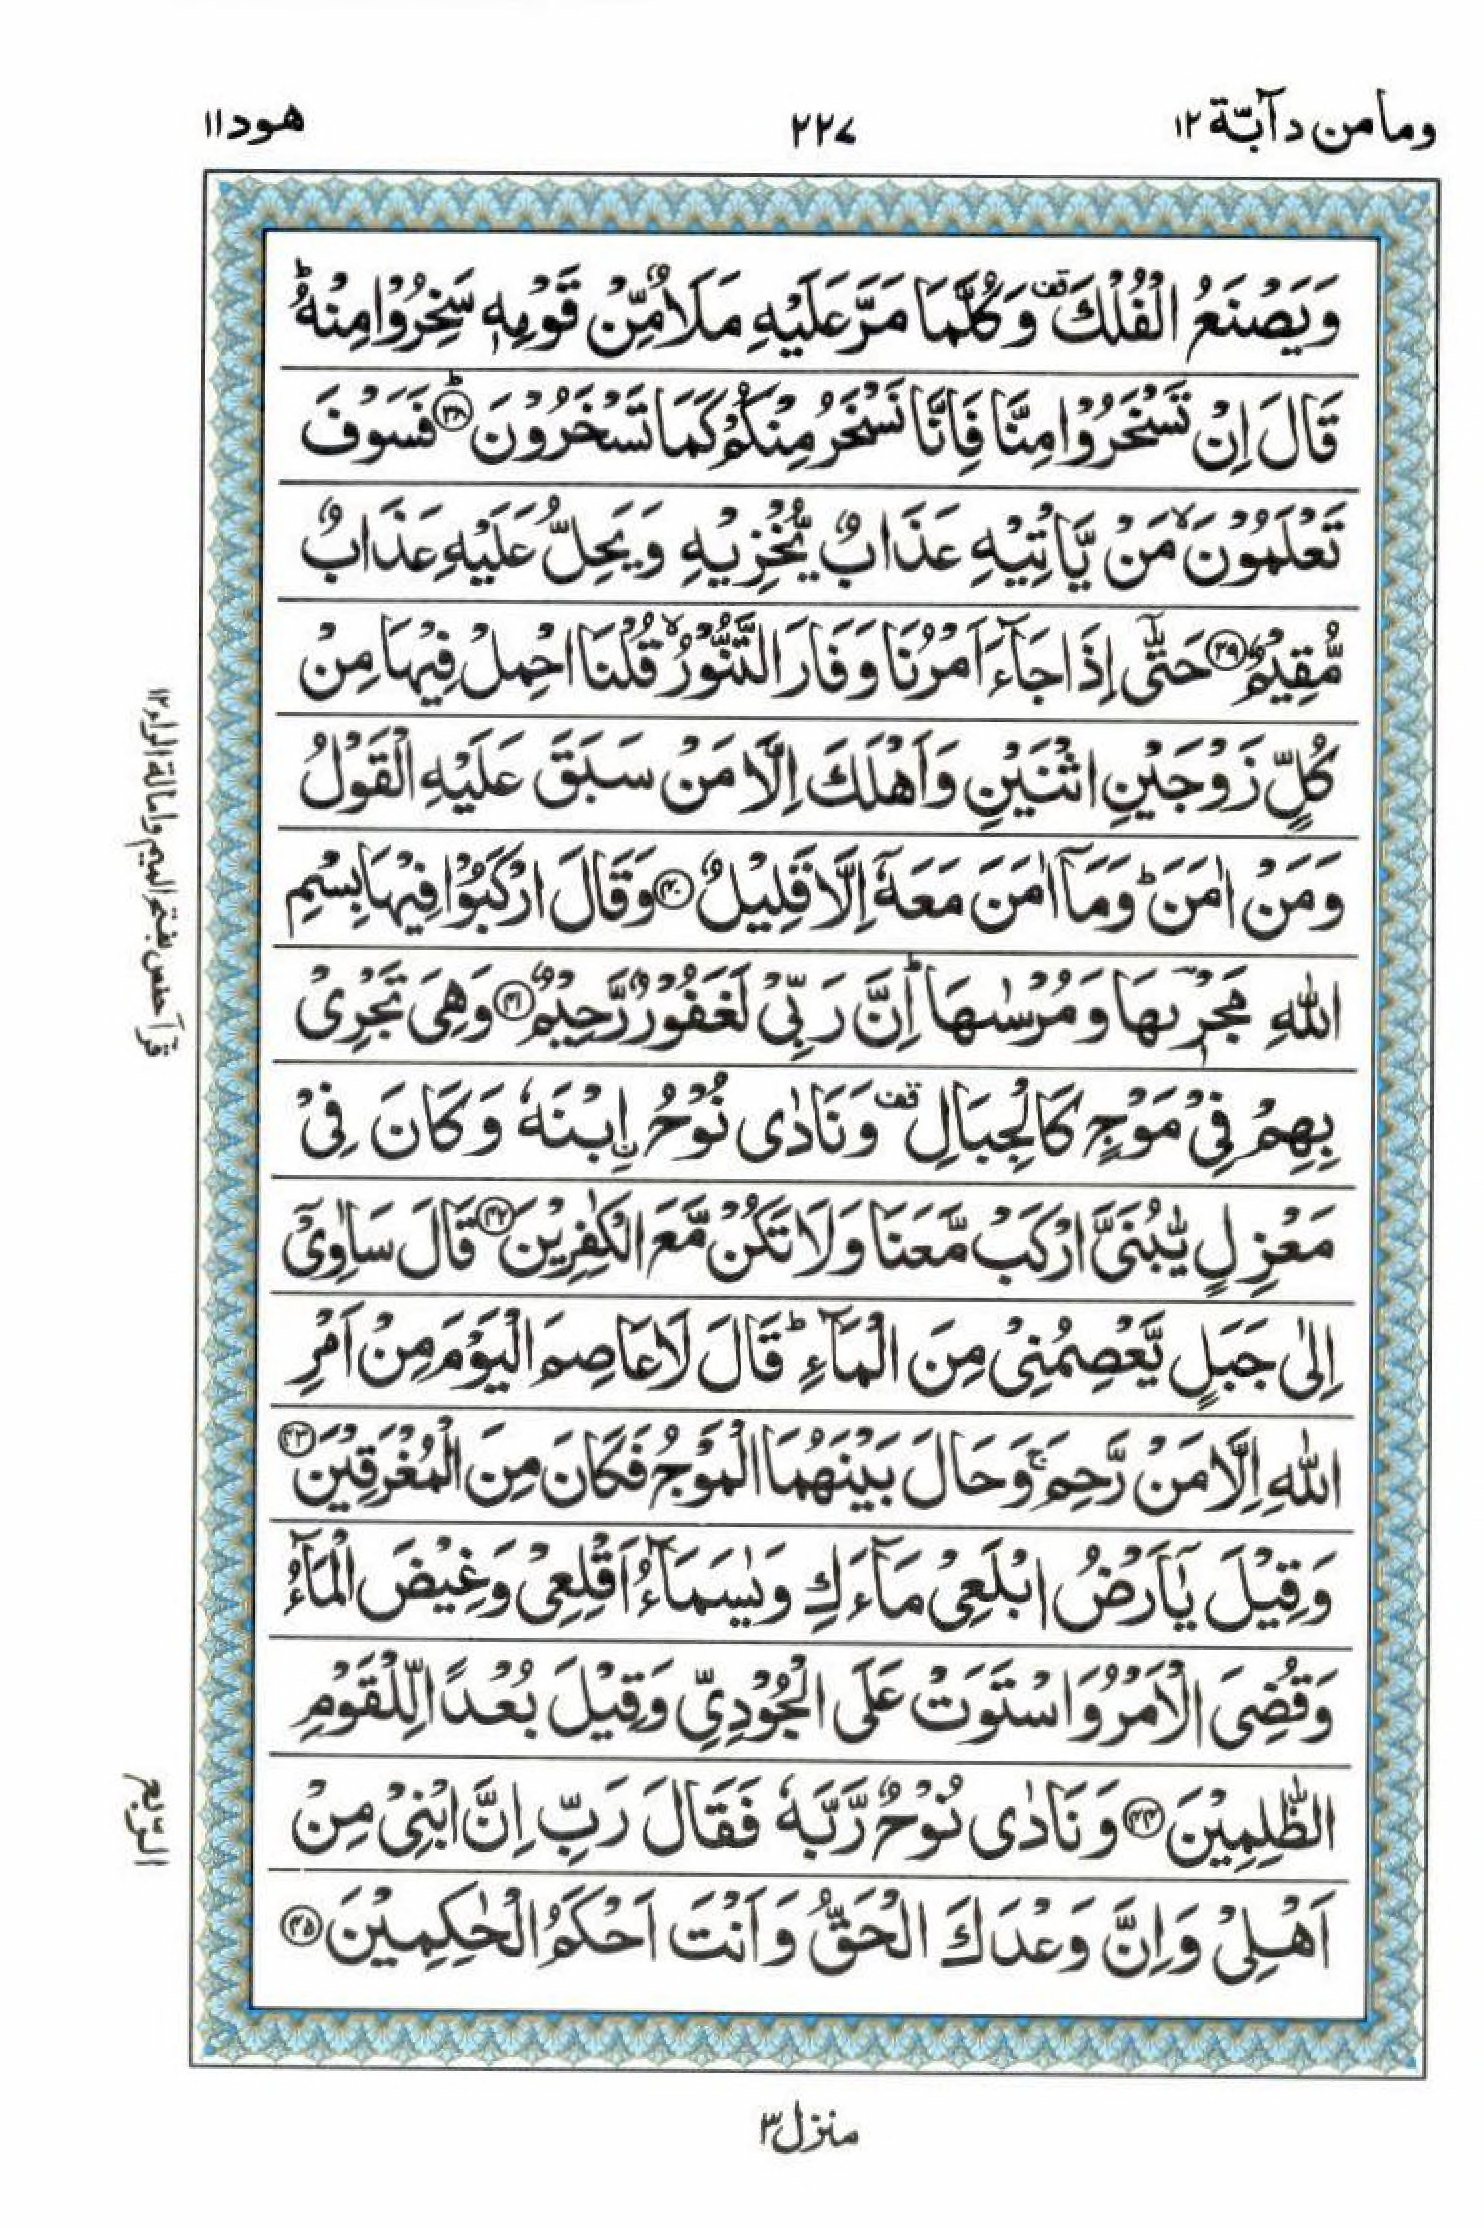 وما من دآبّة ١٢
٢٢٧
هود ١١
وَيَصْنَعُ الْفُلْكَ قف وَكُلَّمَا مَرَّ عَلَيْهِ مَلَاٌ مِّنْ قَوْمِهٖ سَخِرُوْا مِنْهُ ؕ
قَالَ اِنْ تَسْخَرُوْا مِنَّا فَاِنَّا نَسْخَرُ مِنْكُمْ كَمَا تَسْخَرُوْنَ ؕ ﴿٣٨﴾ فَسَوْفَ
تَعْلَمُوْنَ ۙ مَنْ يَّاْتِيْهِ عَذَابٌ يُّخْزِيْهِ وَيَحِلُّ عَلَيْهِ عَذَابٌ
مُّقِيْمٌ ﴿٣٩﴾ حَتّٰۤى اِذَا جَآءَ اَمْرُنَا وَفَارَ التَّنُّوْرُ ۙ قُلْنَا احْمِلْ فِيْهَا مِنْ
كُلٍّ زَوْجَيْنِ اثْنَيْنِ وَاَهْلَكَ اِلَّا مَنْ سَبَقَ عَلَيْهِ الْقَوْلُ
وَمَنْ اٰمَنَ ؕ وَمَاۤ اٰمَنَ مَعَهٗۤ اِلَّا قَلِيْلٌ ﴿٤٠﴾ وَقَالَ ارْكَبُوْا فِيْهَا بِسْمِ
اللّٰهِ مَجْرٖىهَا وَمُرْسٰىهَا ؕ اِنَّ رَبِّىْ لَغَفُوْرٌ رَّحِيْمٌ ﴿٤١﴾ وَهِىَ تَجْرِىْ
بِهِمْ فِىْ مَوْجٍ كَالْجِبَالِ قف وَنَادٰى نُوْحُ ۨابْنَهٗ وَكَانَ فِىْ
مَعْزِلٍ يّٰبُنَىَّ ارْكَبْ مَّعَنَا وَلَا تَكُنْ مَّعَ الْكٰفِرِيْنَ ﴿٤٢﴾ قَالَ سَاٰوِىْۤ
اِلٰى جَبَلٍ يَّعْصِمُنِىْ مِنَ الْمَآءِ ؕ قَالَ لَا عَاصِمَ الْيَوْمَ مِنْ اَمْرِ
اللّٰهِ اِلَّا مَنْ رَّحِمَ ۚ وَحَالَ بَيْنَهُمَا الْمَوْجُ فَكَانَ مِنَ الْمُغْرَقِيْنَ ﴿٤٣﴾
وَقِيْلَ يٰۤاَرْضُ ابْلَعِىْ مَآءَكِ وَيٰسَمَآءُ اَقْلِعِىْ وَغِيْضَ الْمَآءُ
وَقُضِىَ الْاَمْرُ وَاسْتَوَتْ عَلَى الْجُوْدِىِّ وَقِيْلَ بُعْدًا لِّلْقَوْمِ
الظّٰلِمِيْنَ ﴿٤٤﴾ وَنَادٰى نُوْحٌ رَّبَّهٗ فَقَالَ رَبِّ اِنَّ ابْنِىْ مِنْ
اَهْلِىْ وَاِنَّ وَعْدَكَ الْحَقُّ وَاَنْتَ اَحْكَمُ الْحٰكِمِيْنَ ﴿٤٥﴾
قرأ حفص بفتح الميم وامالة الراء ١٢
الرّبع
منزل ٣